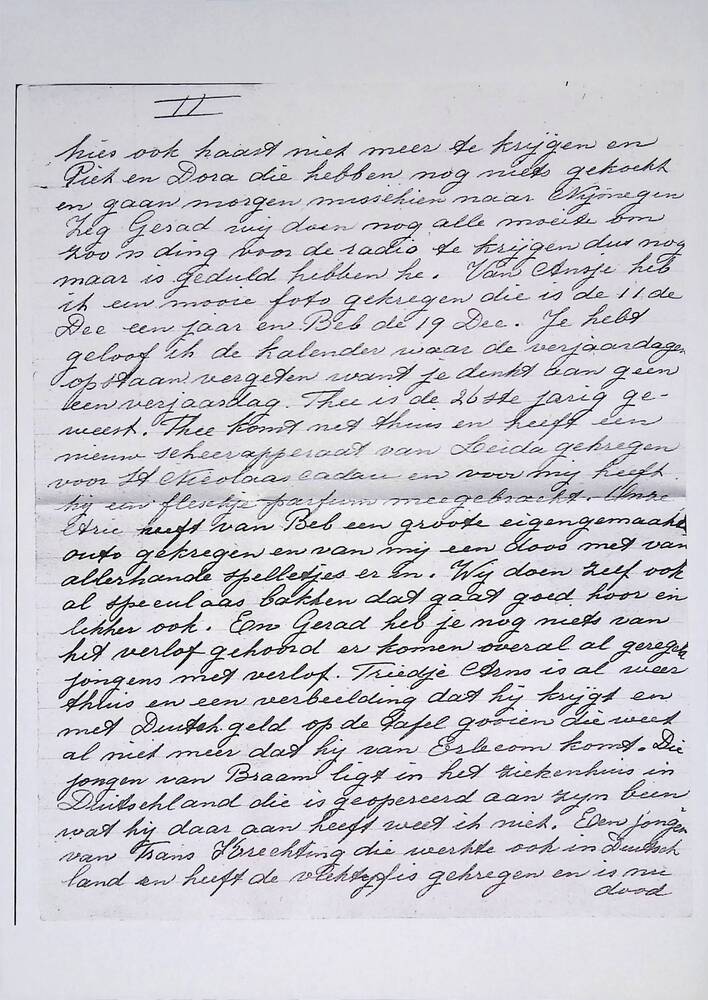 II
hies ook haast niet meer te krijgen en
Piet en Dora die hebben nog niets gekocht
en gaan morgen misschien naar Nijmegen
Zeg Gerad wij doen nog alle moeite om
zoo n ding voor de radio te krijgen dus nog
maar is geduld hebben he. Van Ansje heb
ik een mooie foto gekregen die is de 11 de
Dec een jaar en Beb de 19 Dec. Je hebt
geloof ik de kalender waar de verjaardagen
opstaan vergeten want je denkt aan geen
een verjaardag. Thee is de 26 ste jarig ge-
weest. Thee komt net thuis en heeft een
nieuw scheerapperaat van Leida gekregen
voor St Nicolaas cadau en voor mij heeft
hij een fleschje parfum meegebracht. Onze
Arie heeft van Beb een groote eigengemaakte
outo gekregen en van mij een doos met van
allerhande spelletjes er in. Wij doen zelf ook
al speculaas bakken dat gaat goed hoor en
lekker ook. En Gerad heb je nog niets van
het verlof gehoord er komen overal al geregeld
jongens met verlof. Triedje Arns is al weer
thuis en een verbeelding dat hij krijgt en
met Duitsch geld op de tafel gooien die weet
al niet meer dat hij van Erlecom komt. Die
jongen van Braam ligt in het ziekenhuis in
Duitschland die is geopereerd aan zijn been
wat hij daar aan heeft weet ik niet. Een jongen
van Frans die werkte ook in Duitsch
land en heeft de vlektyfis gekregen en is nu
dood